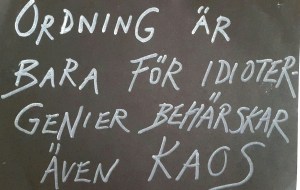 ORDNING ÄR
BARA FÖR IDIOTER
GENIER BEHÄRSKAR
ÄVEN KAOS